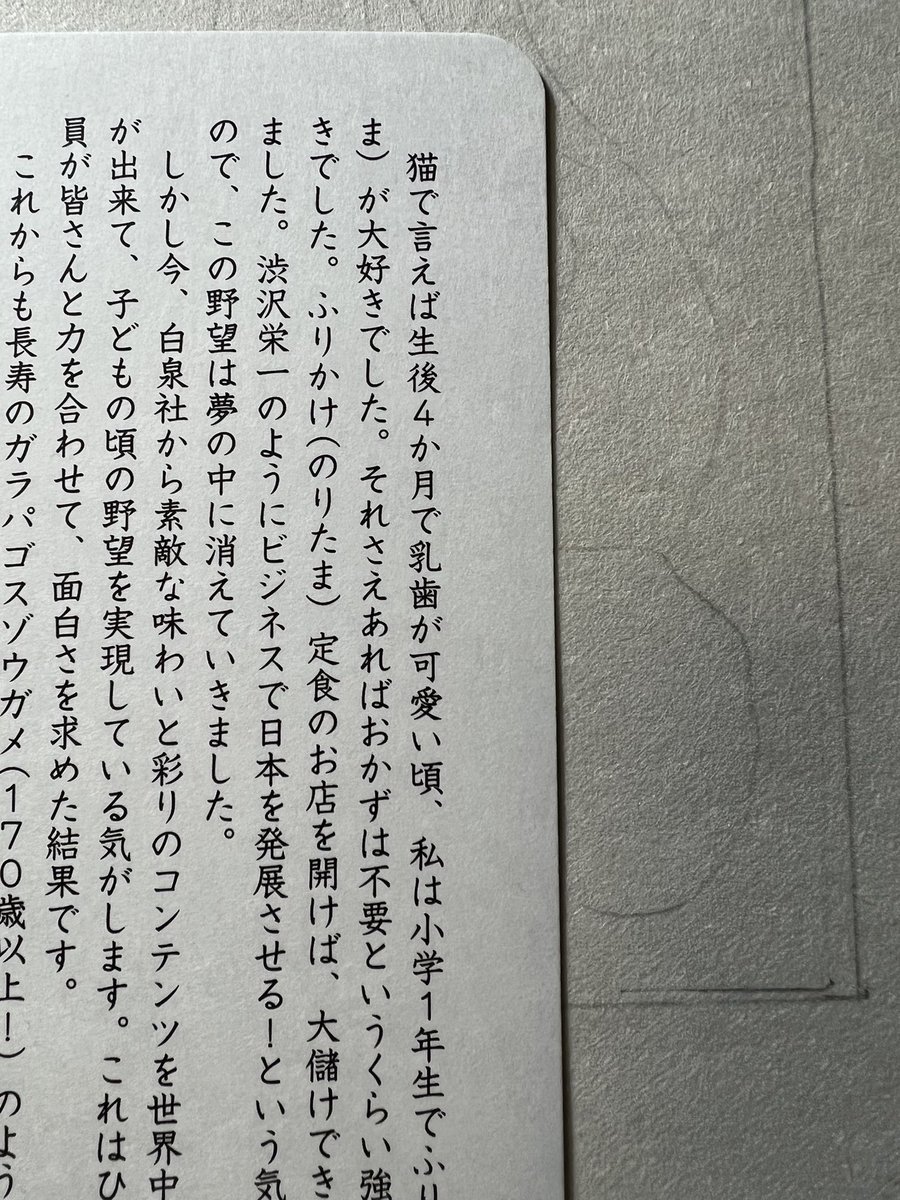 猫で言えば生後4か月で乳歯が可愛い頃、私は小学1年生でふり
ま)が大好きでした。それさえあればおかずは不要というくらい強
きでした。ふりかけ(のりたま)定食のお店を開けば、大儲けでき
ました。渋沢栄一のようにビジネスで日本を発展させる!という気
ので、この野望は夢の中に消えていきました。
しかし今、白泉社から素敵な味わいと彩りのコンテンツを世界中
が出来て、子どもの頃の野望を実現している気がします。これはひ
員が皆さんと力を合わせて、面白さを求めた結果です。
これからも長寿のガラパゴスゾウガメ(170歳以上!)のよう